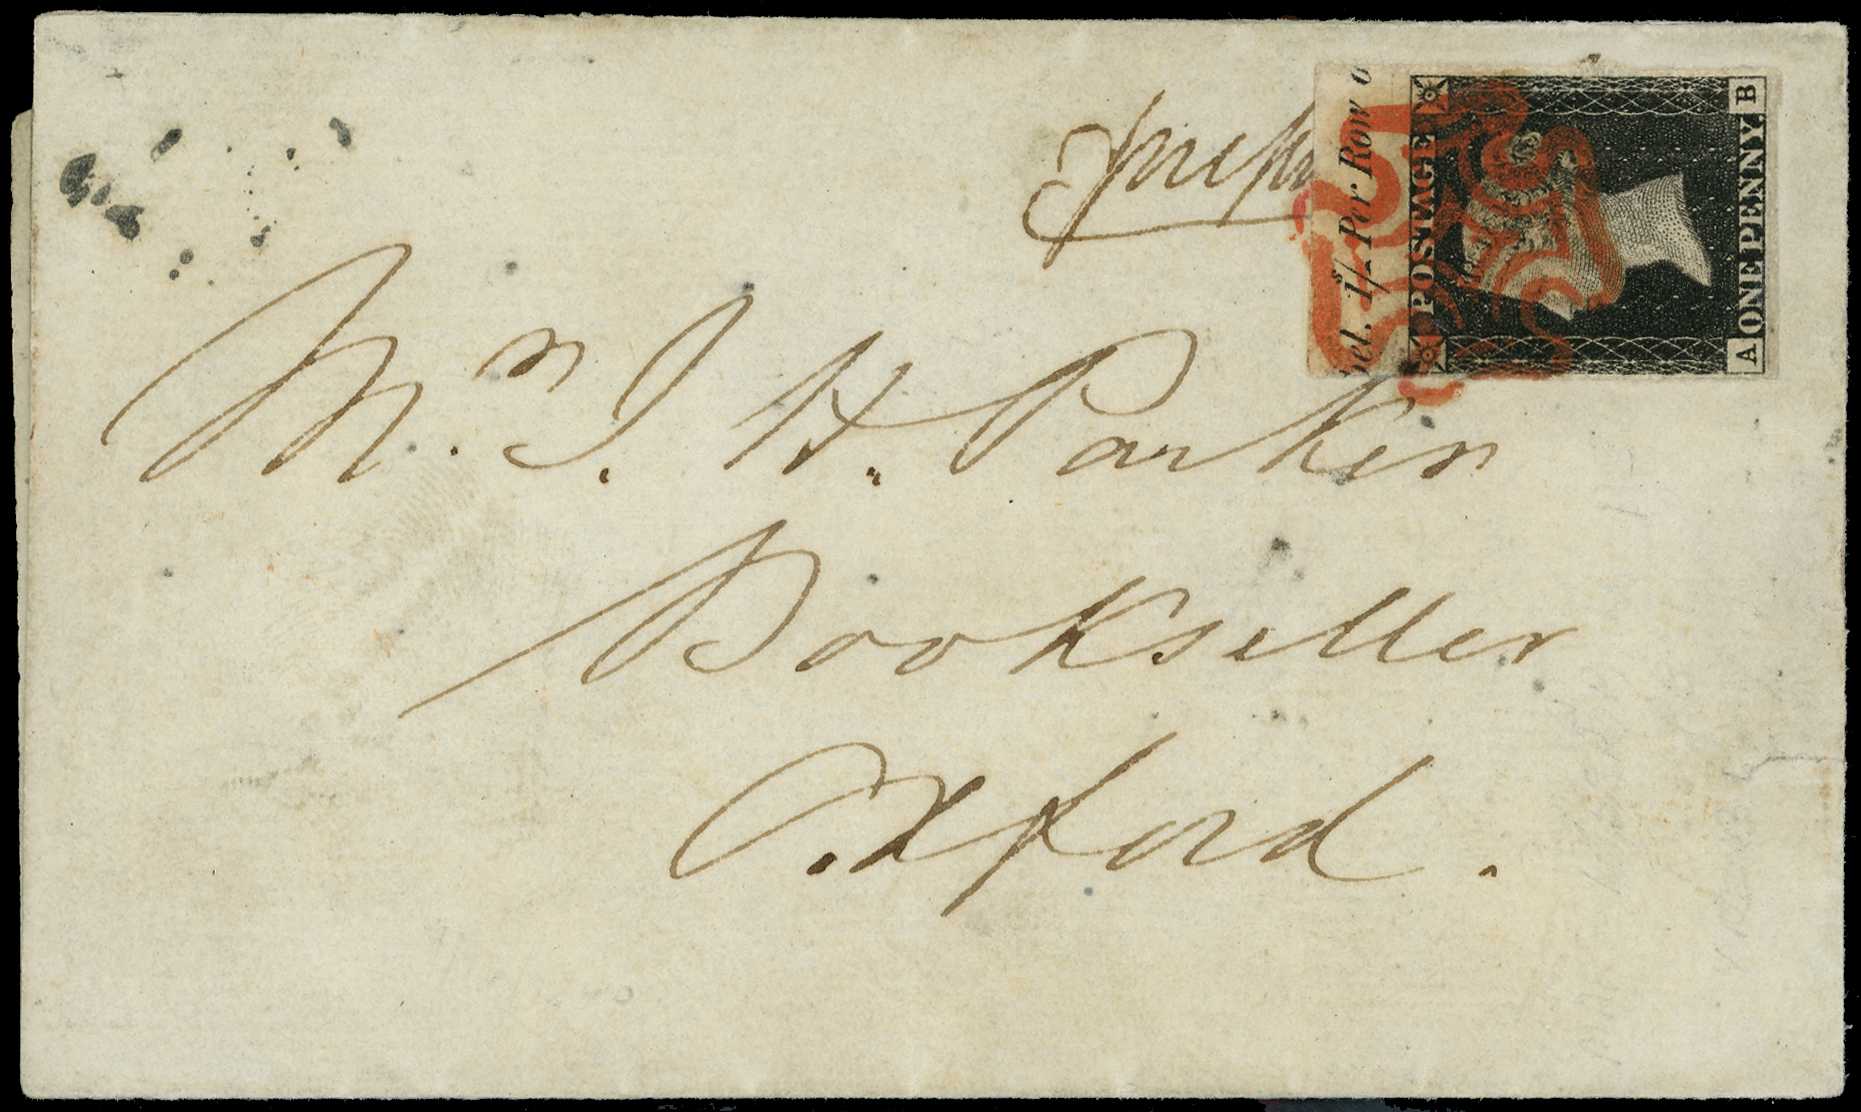 prepa
Mr. J. H. Parker
Bookseller
Oxford.
bel. 1/s Per Row o
POSTAGE
ONE PENNY
A B